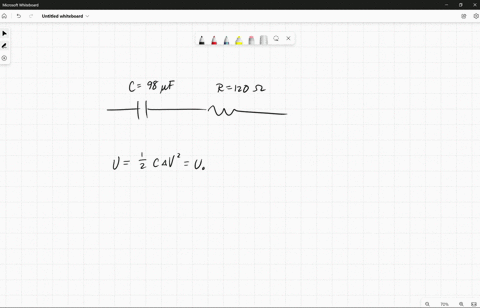 Microsoft Whiteboard
Untitled whiteboard
C = 98 μF R = 120 Ω
U = 1/2 C ΔV² = U₀
70%